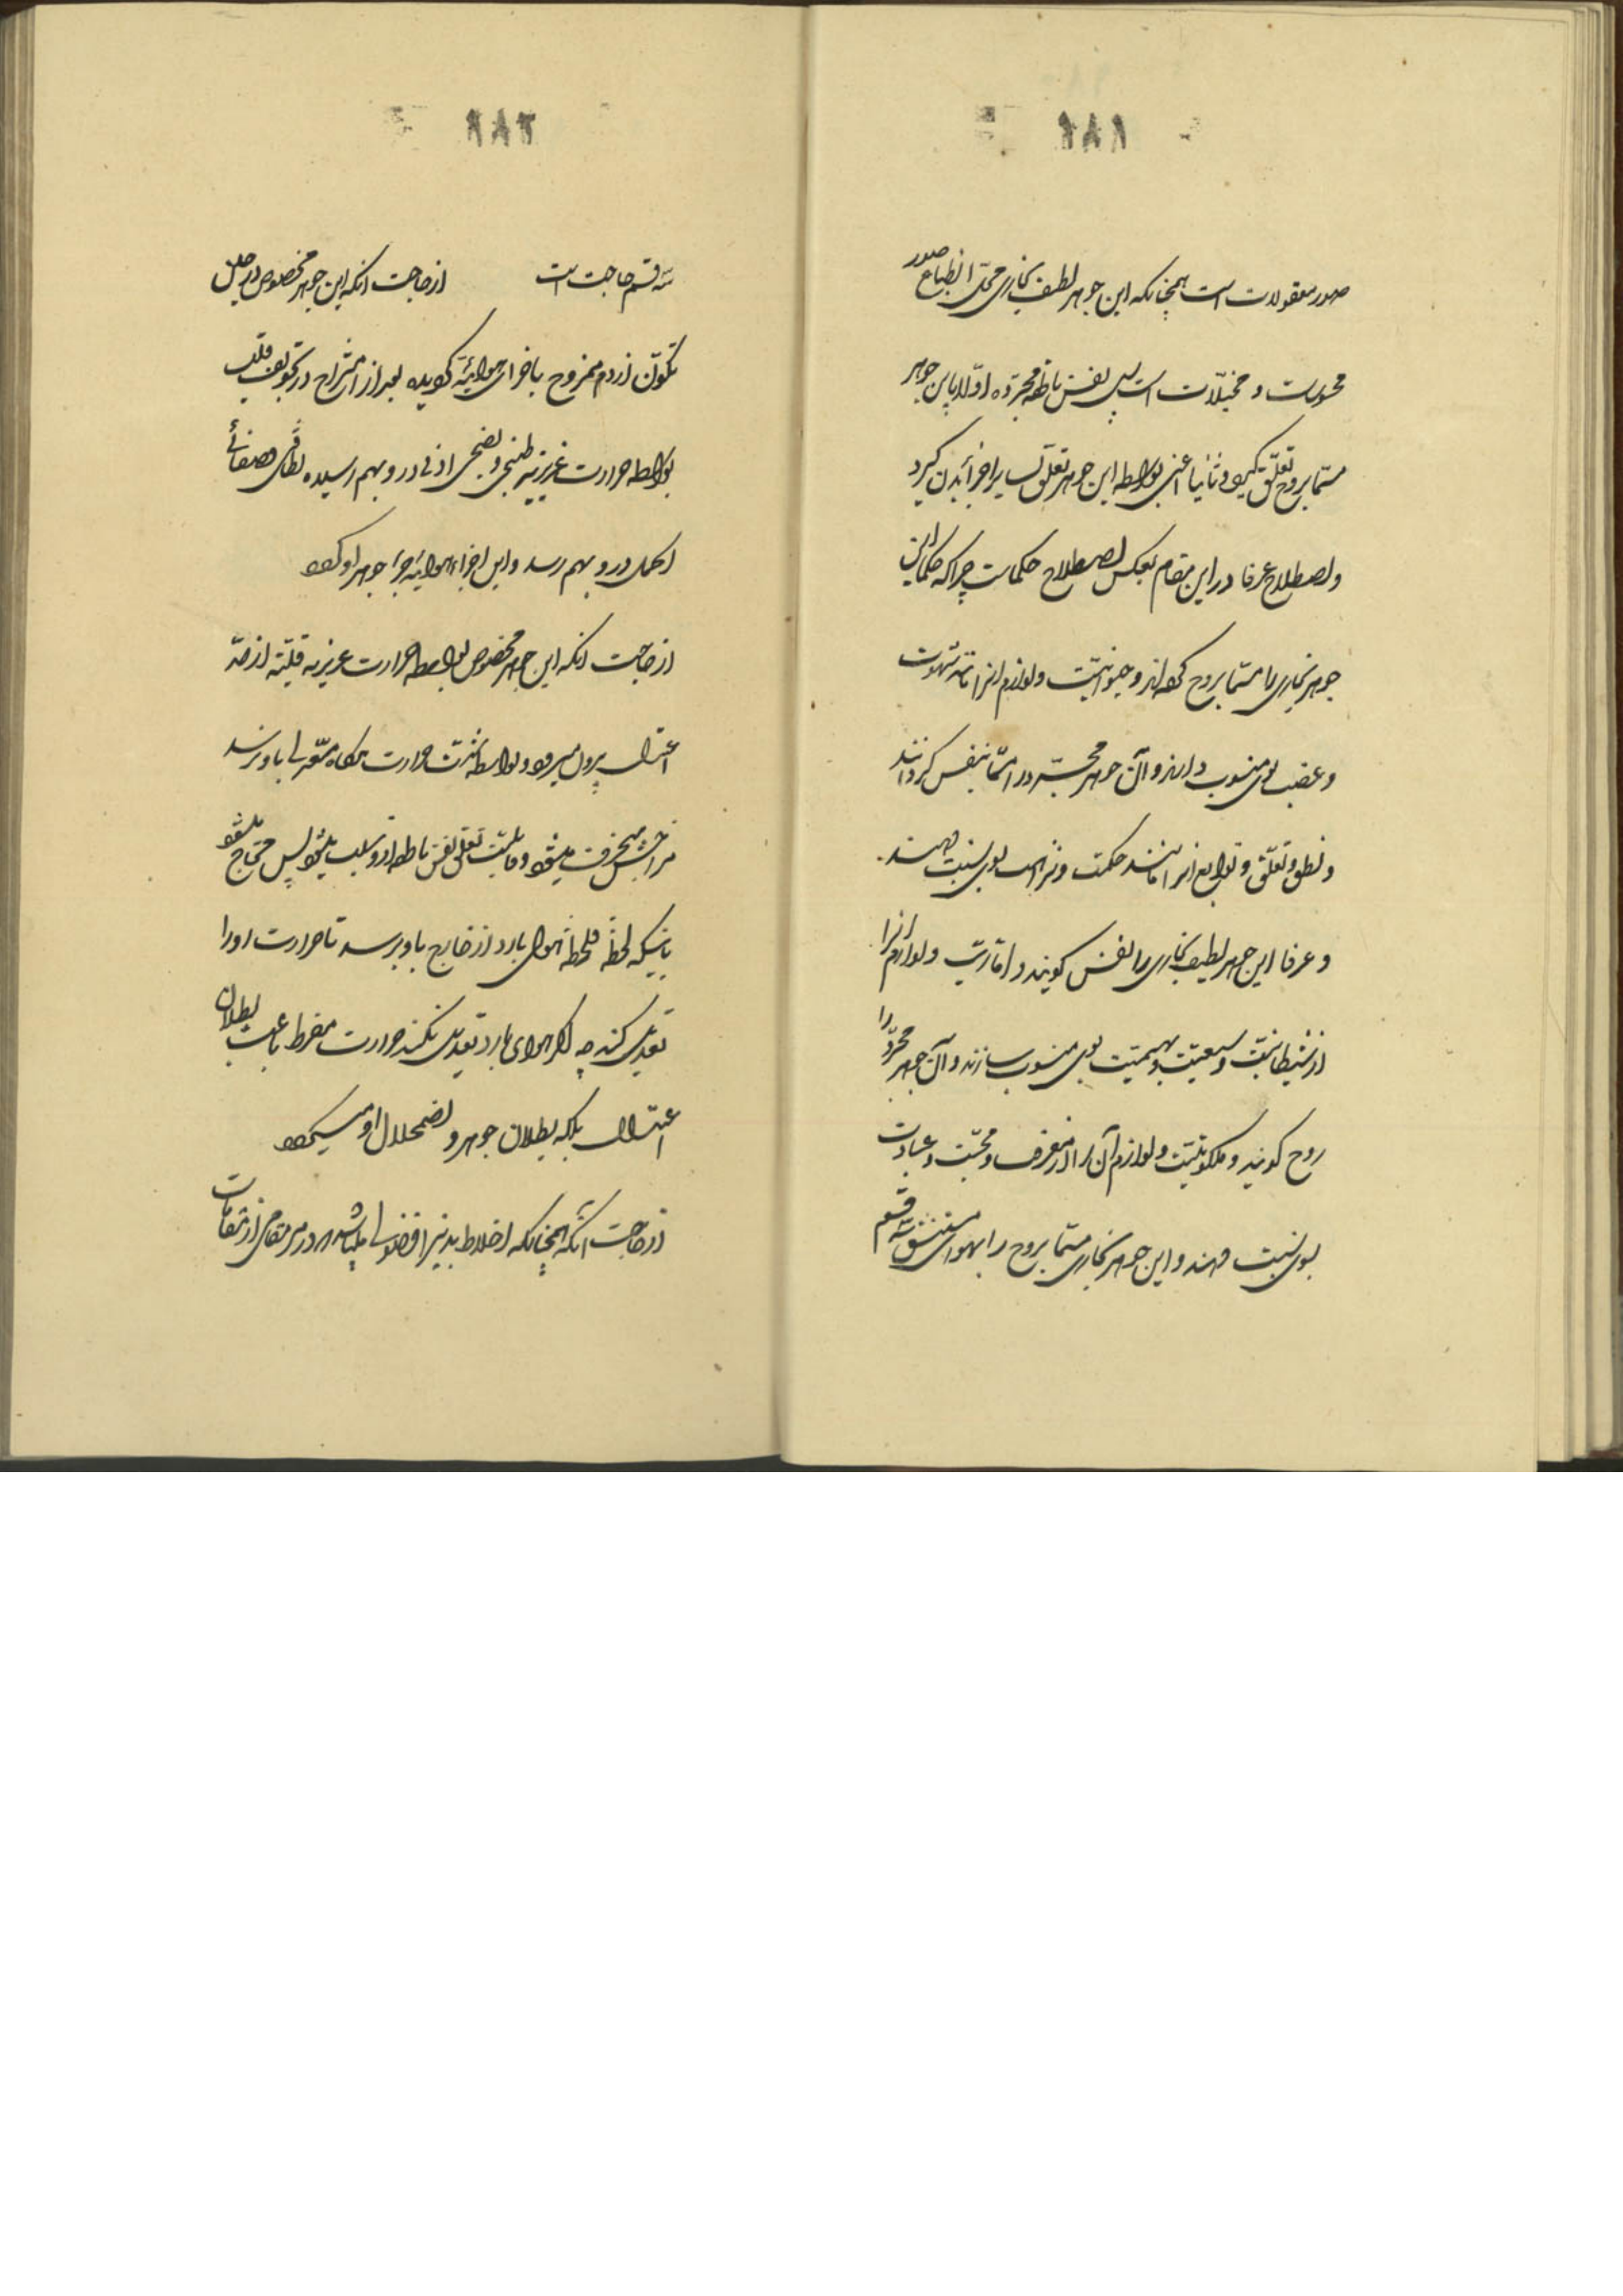 ۲۸۱
صور معقولات است همچنانکه این جوهر لطیف بخاری محل انطباع صور
محسوسات و مخیلات است پس نفس ناطقه مجرده اولا باین جوهر
مسما بروح تعلق گیرد و ثانیا اعنی بواسطه این جوهر تعلق بسایر اجزای بدن گیرد
و اصطلاح عرفا در این مقام بعکس اصطلاح حکماست چرا که حکما این
جوهر بخاری را مسما بروح کرده‌اند و حیوانیت و لوازم انرا مانند شهوت
و غضب بوی منسوب دارند و آن جوهر مجرد را مسما بنفس گردانند
و نطق و تعلق و توابع انرا مانند حکمت و نزاهت بوی نسبت دهند
و عرفا این جوهر لطیف بخاری را نفس گویند و امّاریت و لوازم انرا
از شیطانیت و سبعیت و بهیمیت بوی منسوب سازند و آن جوهر مجرد را
روح گویند و ملکوتیت و لوازم آن را از معرفت و محبت و عبادت
بوی نسبت دهند و این جوهر بخاری مسما بروح را بهوای مستنشق سه قسم
۲۸۲
سه قسم حاجت است از حاجت انکه این جوهر مخصوص در حین
تکون از دم ممزوج باجزای هوائیه گردیده بعد از امتزاج در تجویف قلب
بواسطه حرارت غریزیه طبخی و نضجی اخری در و بهم رسیده لطافت و صفائی
اکمل در و بهم رسد و این اجزاء هوائیه جزء جوهر او گردد
از حاجت انکه این جوهر مخصوص بواسطه حرارت غریزیه قلبیه از حد
اعتدال بیرون میرود و بواسطه شدت حرارت هرگاه معدلی باو نرسد
مزاجش منحرف میشود و قابلیت تعلق نفس ناطقه ازو سلب میشود پس محتاج میشود
باینکه لحظه فلحظه هوای بارد از خارج باو برسد تا حرارت او را
تعدیل کند چه اگر هوای بارد تعدیل نکند حرارت مفرط باعث بطلان
اعتدال بلکه بطلان جوهر و اضمحلال او میگردد
از حاجت آنکه همچنانکه اخلاط بدنیه را فضول میباشد در هر مقامی از مقامات